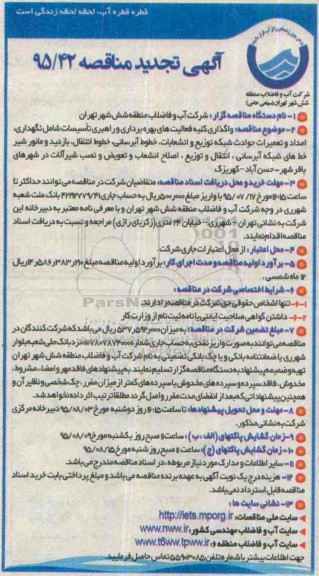 قطره قطره آب، لحظه لحظه زندگی است
آگهی تجدید مناقصه ۹۵/۴۲
شرکت آب و فاضلاب منطقه
شش شهر تهران (سهامی خاص)
۱- نام دستگاه مناقصه گزار : شرکت آب و فاضلاب منطقه شش شهر تهران
۲- موضوع مناقصه: واگذاری کلیه فعالیت های بهره برداری و راهبری تأسیسات شامل نگهداری،
امداد و تعمیرات حوادث شبکه توزیع و انشعابات، خطوط آبرسانی، خطوط انتقال، بازدید و مانور شیر
خط های شبکه آبرسانی ، انتقال و توزیع ، اصلاح انشعاب و تعویض و نصب شیرآلات در شهرهای
باقر شهر - حسن آباد - کهریزک
۳- مهلت خرید و محل دریافت اسناد مناقصه: متقاضیان شرکت در مناقصه می توانند حداکثر تا
ساعت ۱۶:۱۵ مورخ ۹۵/۰۷/۱۷ با واریز مبلغ ۵۰۰،۰۰۰ ریال به حساب جاری بانک ملت شعبه
شهرری در وجه شرکت آب و فاضلاب منطقه شش شهر تهران و با معرفی نامه معتبر به دبیرخانه این
شرکت به نشانی تهران - شهرری - خیابان ۲۴ متری (زکریای رازی) مراجعه و نسبت به دریافت اسناد
مناقصه اقدام نمایند.
۴- محل اعتبار : از محل اعتبارات جاری شرکت.
۵- برآورد اولیه مناقصه و مدت اجرای کار: برآورد اولیه مناقصه مبلغ ۱۴،۵۸۶،۳۸۳،۲۱۰ ریال
۱۲ ماه شمسی.
۶- شرایط اختصاصی شرکت در مناقصه :
۶-۱- تنها اشخاص حقوقی حق شرکت در مناقصه را دارند.
۶-۲- داشتن گواهی صلاحیت ایمنی یا نامه ثبت نام از وزارت کار
۷- مبلغ تضمین شرکت در مناقصه : به میزان ۵۳۷،۵۹۲،۰۰۰ ریال می باشد که شرکت کنندگان در
مناقصه می توانند به صورت واریز نقدی به حساب جاری شماره نزد بانک ملی شعبه بلوار
شهرری یا ضمانتنامه بانکی و یا چک بانکی تضمینی به نام شرکت آب و فاضلاب منطقه شش شهر تهران
تهیه و ضمیمه پیشنهاد به دستگاه مناقصه گزار تسلیم نمایند. به پیشنهادهای فاقد مهر و امضاء، مشروط،
مخدوش، فاقد سپرده و سپرده های مخدوش یا سپرده های کمتر از میزان مقرر، چک شخصی و نظایر آن و
همچنین پیشنهاداتی که بعد از انقضای مدت مقرر واصل گردد مطلقا ترتیب اثر داده نخواهد شد.
۸- مهلت و محل تحویل پیشنهادها: تا ساعت ۱۶:۱۵ روز دوشنبه مورخ ۹۵/۰۸/۰۳ دبیرخانه مرکزی
شرکت به نشانی مذکور.
۹- زمان گشایش پاکتهای (الف، ب) : ساعت ۱۱ صبح روز یکشنبه مورخ ۹۵/۰۸/۰۹
۱۰- زمان گشایش پاکتهای (ج) : ساعت ۱۱ صبح روز شنبه مورخ ۹۵/۰۸/۱۵
۱۱- سایر اطلاعات و مدارک مورد نیاز مربوطه، در اسناد مناقصه مندرج می باشد.
۱۲- هزینه درج یک نوبت آگهی به عهده برنده مناقصه می باشد و مبلغ پرداختی بابت خرید اسناد
مناقصه قابل استرداد نمی باشد.
۱۳- نشانی سایت ها :
سایت ملی مناقصات: http://iets.mporg.ir
سایت آب و فاضلاب مهندسی کشور: www.nww.ir
سایت آب و فاضلاب منطقه ۶: www.t6ww.tpww.ir
جهت اطلاعات بیشتر با شماره تلفن ۵۵۹۰۳۰۸۵ تماس حاصل فرمایید.